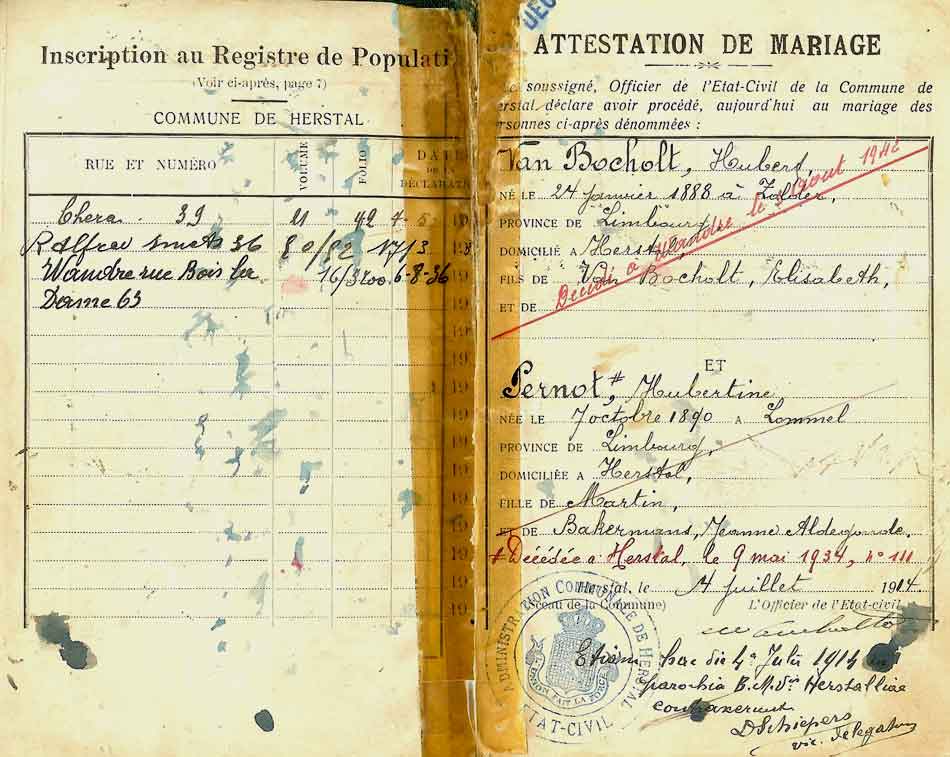 Inscription au Registre de Populati
(Voir ci-après, page 7)
COMMUNE DE HERSTAL
RUE ET NUMÉRO VOLUME FOLIO DATE DE LA DÉCLARATI
Chera 39 11 42 4 5 19
R Alfred Smets 36 80/82 17/3 19
Wandre rue Bois la 16/3200 6-8-36
Dame 63
19
19
19
19
19
19
19
19
19
19
DÉC
ATTESTATION DE MARIAGE
soussigné, Officier de l'Etat-Civil de la Commune de
erstal déclare avoir procédé, aujourd'hui au mariage des
rsonnes ci-après dénommées :
Van Bocholt, Hubert,
NÉ LE 24 janvier 1888 à Zolder,
PROVINCE DE Limbourg,
DOMICILIÉ A Herstal,
FILS DE Van Bocholt, Elisabeth,
ET DE
Décédé à Wandre le août 1942
ET
Pernot,# Hubertine,
NÉE LE 7 octobre 1890 A Lommel
PROVINCE DE Limbourg,
DOMICILIÉE A Herstal,
FILLE DE Martin,
ET DE Bakermans, Jeanne Aldegonde.
# Décédée à Herstal, le 9 mai 1934, n° 111
Herstal, le 4 juillet 1914
(Sceau de la Commune) L'Officier de l'Etat-civil,
ADMINISTRATION COMMUNALE DE HERSTAL
L'UNION FAIT LA FORCE
ETAT-CIVIL
Etiam hac die 4a Julii 1914 in
parochia B.M.V. Herstalliae
contraxerunt
D Schiepers
vic. delegatus